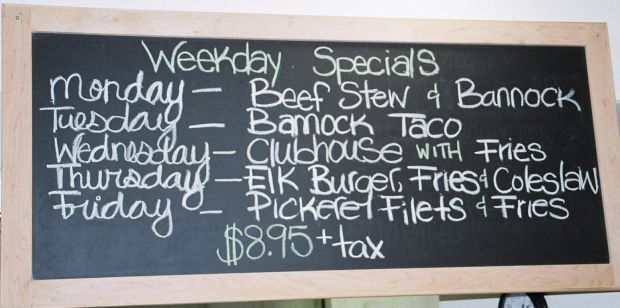 Weekday Specials
Monday - Beef Stew & Bannock
Tuesday - Bannock Taco
Wednesday - Clubhouse WITH Fries
Thursday - Elk Burger, Fries & Coleslaw
Friday - Pickerel Filets & Fries
$8.95 + tax